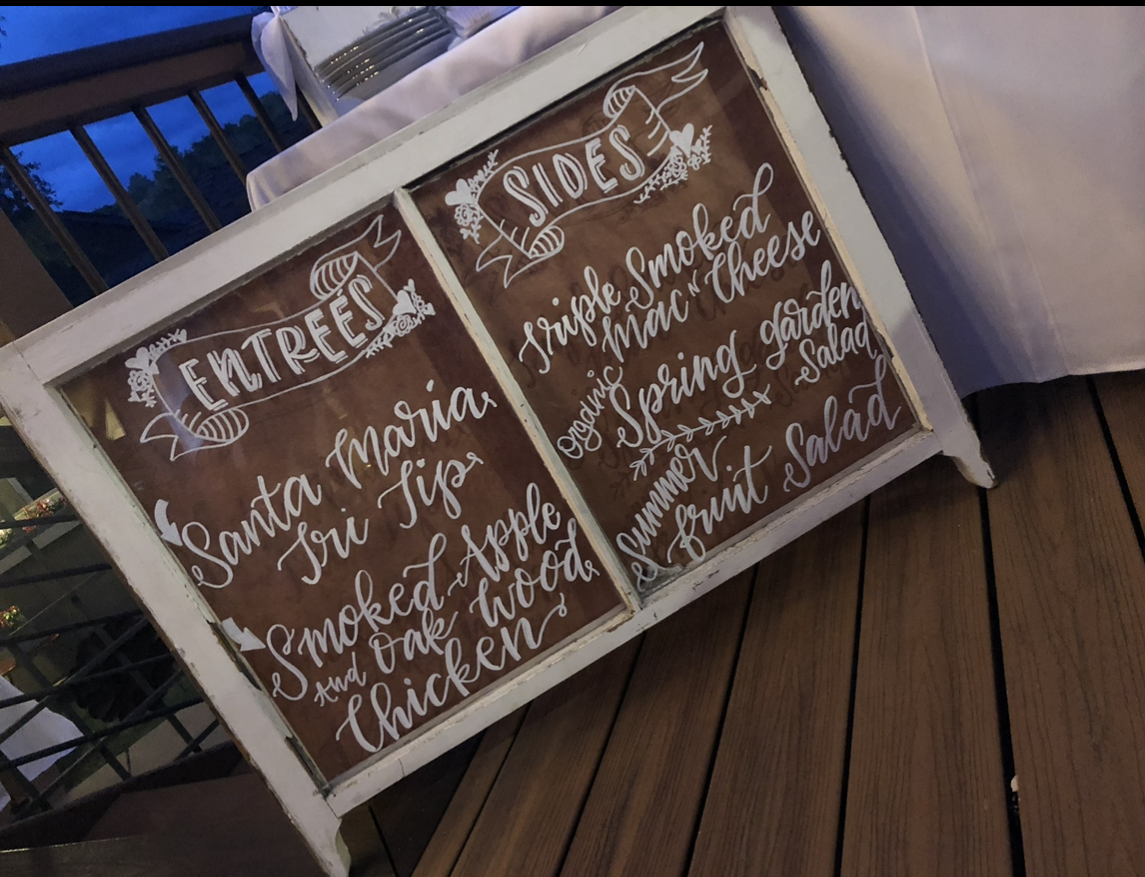 ENTREES
Santa Maria
Tri Tip
Smoked Apple
And Oak Wood
Chicken
SIDES
Triple Smoked
Mac n' Cheese
Organic Spring garden
Salad
Summer
fruit Salad